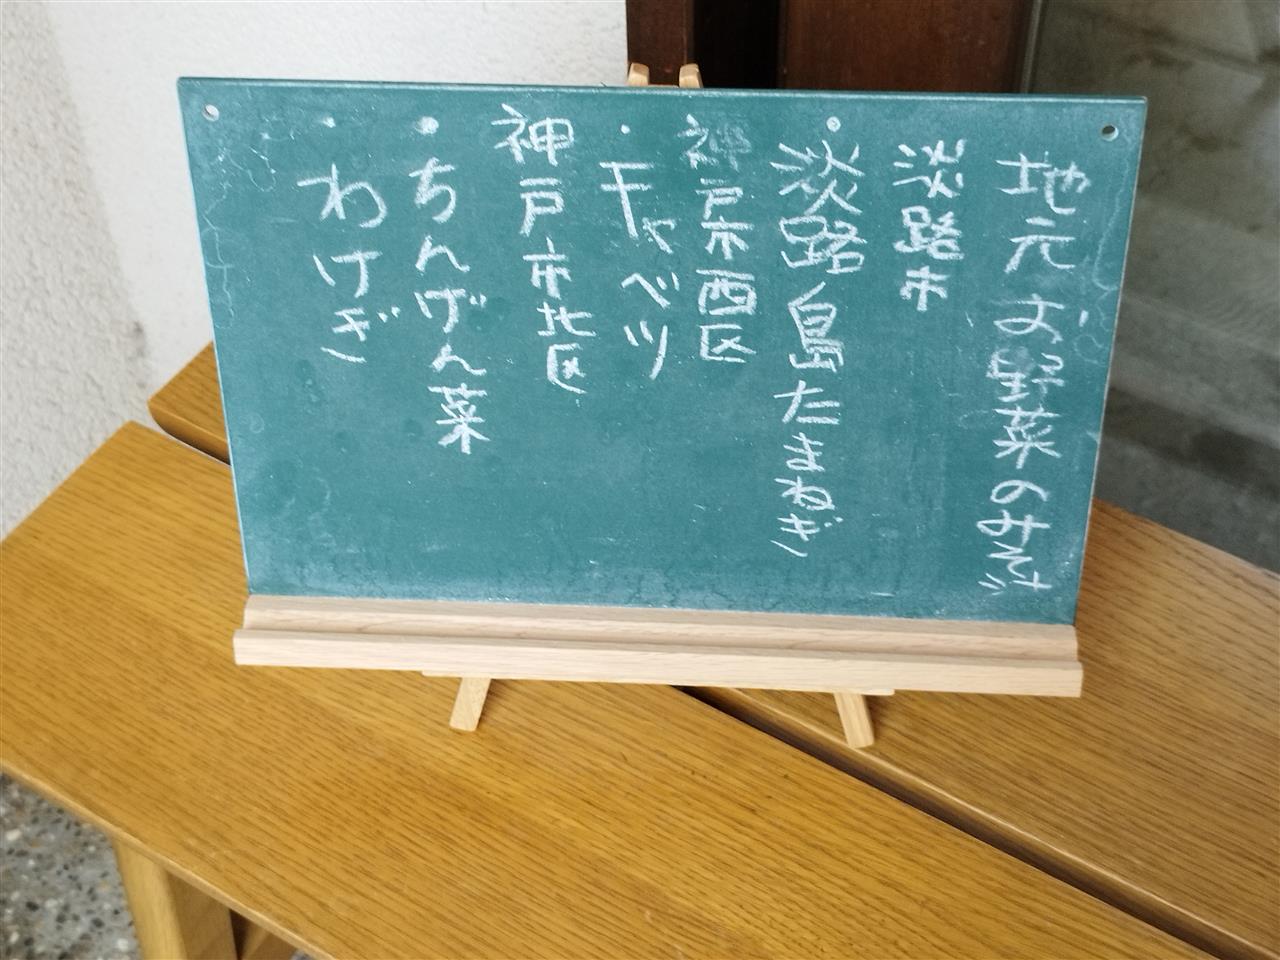 地元お野菜のみそ汁
淡路市
・淡路島たまねぎ
神戸市西区
・キャベツ
神戸市北区
・ちんげん菜
・わけぎ